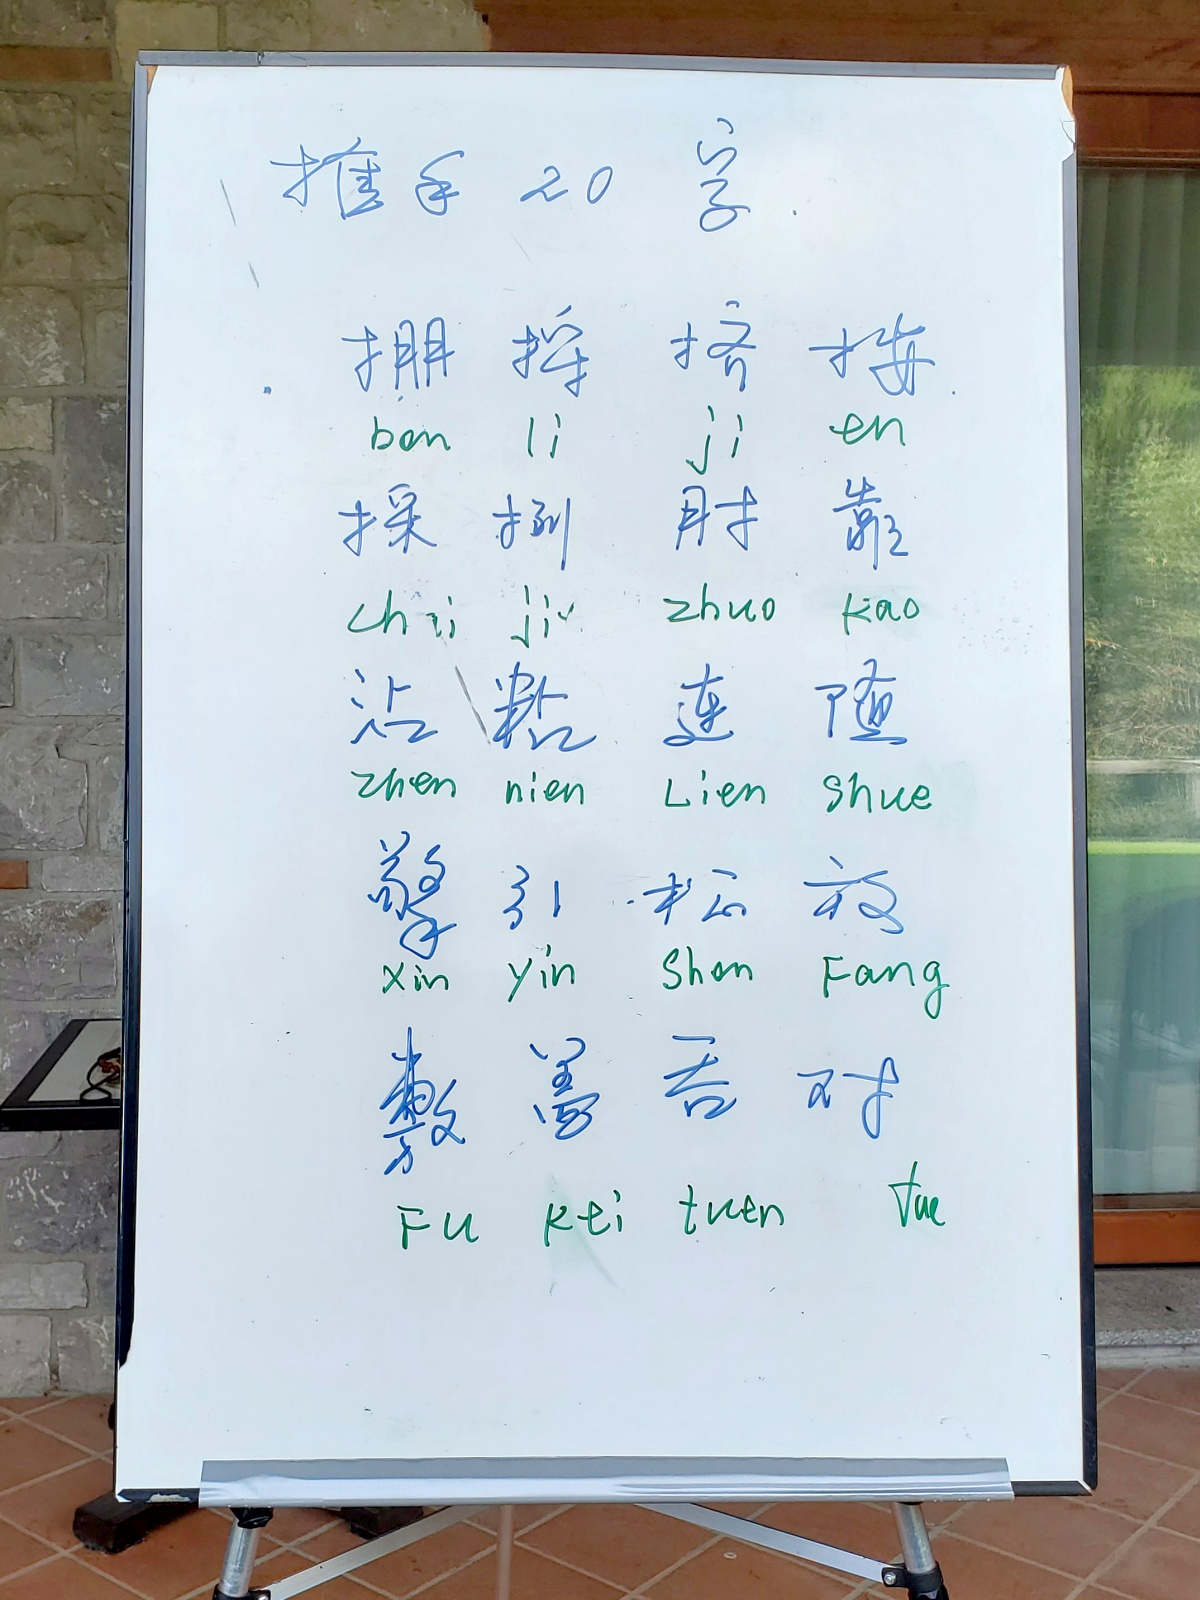 推手 20 字
掤 捋 挤 按
bon li ji en
採 挒 肘 靠
chai jir zhuo kao
沾 粘 連 随
zhen nien Lien shue
擎 引 松 放
xin yin Shon Fang
敷 盖 吞 对
Fu kei tuen tue